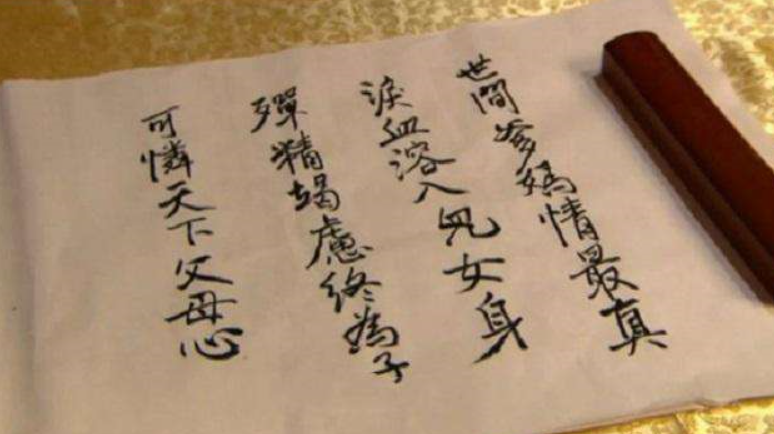 世間爹媽情最真
淚血溶入兒女身
殫精竭慮終為子
可憐天下父母心